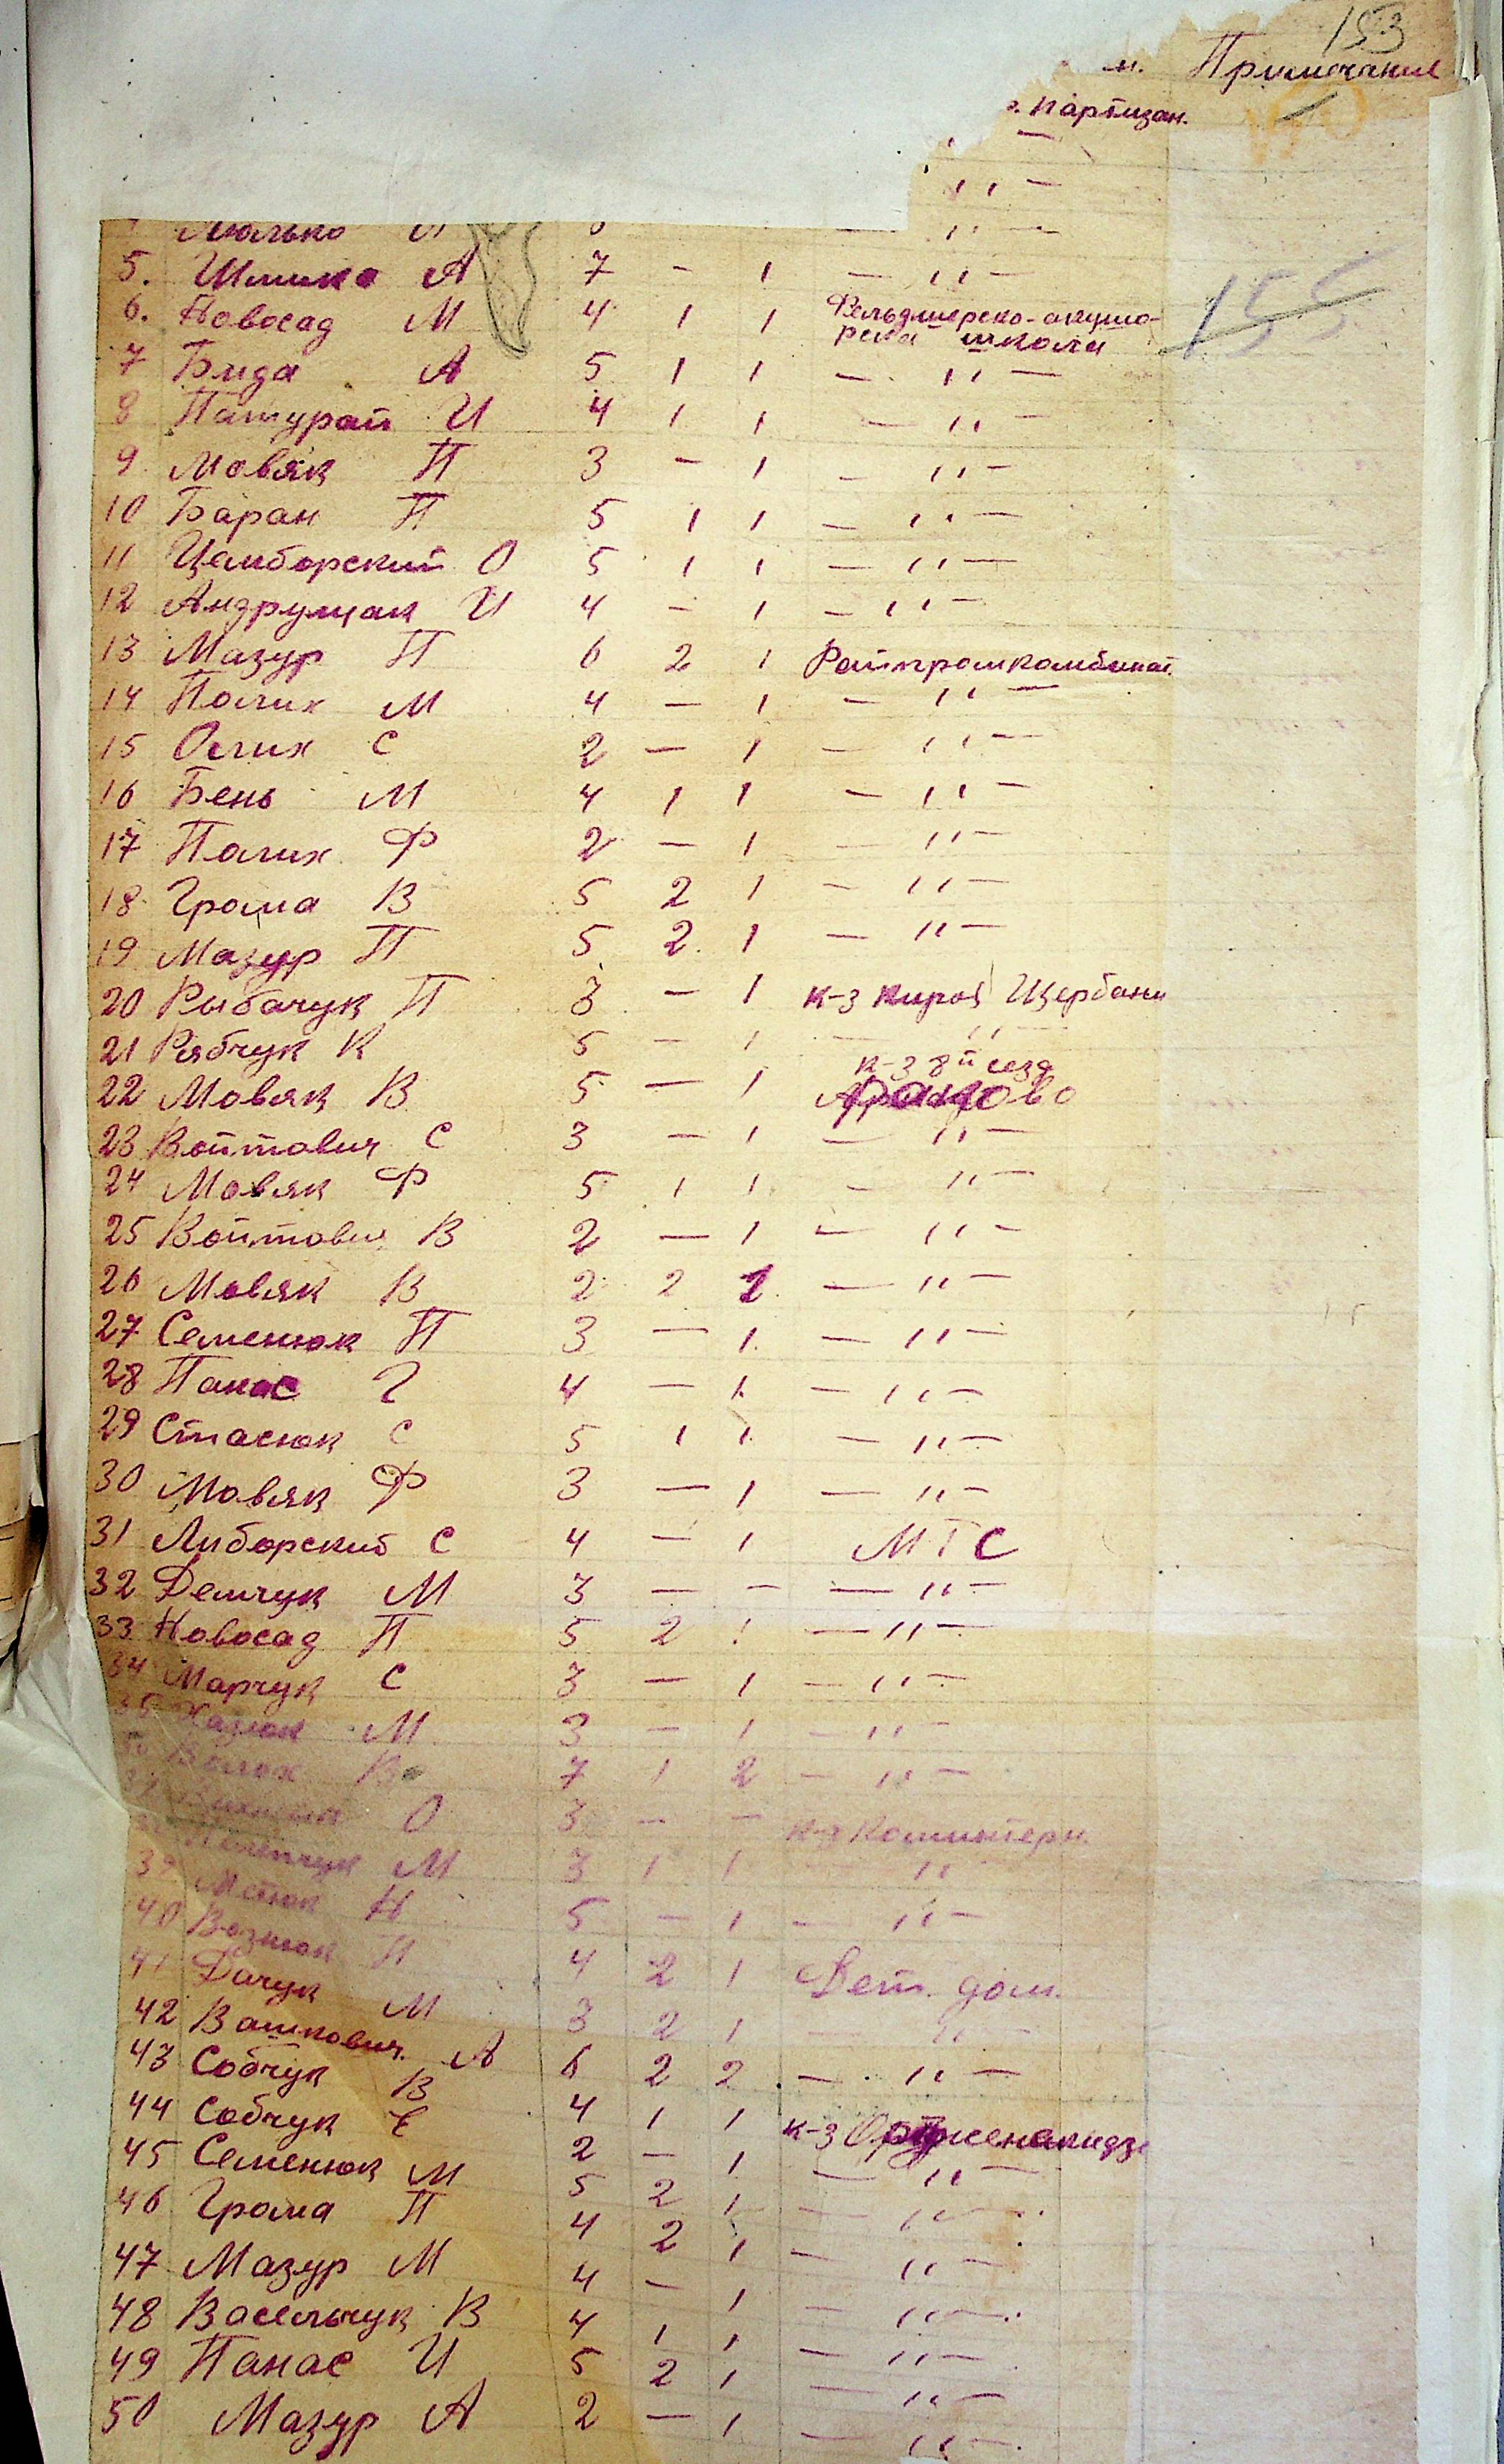 153
Примечание
Партизан.
— " —
— " —
5. А 7 — 1 — " —
6. Новосад М 4 1 1 Фельдшерско-акуше-
рска школа
155
7 Бида А 5 1 1 — " —
8 Патурай И 4 1 1 — " —
9 Мовяк П 3 — 1 — " —
10 Баран П 5 1 1 — " —
11 Цамборский О 5 1 1 — " —
12 Андрущак И 4 — 1 — " —
13 Мазур П 6 2 1 Райпромкомбинат
14 Палих М 4 — 1 — " —
15 Олих С 2 — 1 — " —
16 Бень М 4 1 1 — " —
17 Палих Ф 2 — 1 — " —
18 Грома В 5 2 1 — " —
19 Мазур П 5 2 1 — " —
20 Рыбачук П 3 — 1 к-з Щербани
21 Рябчук К 5 — 1 — " —
к-з 8й сезд
22 Мовяк В 5 — 1
23 Войтович С 3 — 1 — " —
24 Мовяк Ф 5 1 1 — " —
25 Войтович В 2 — 1 — " —
26 Мовяк В 2 2 — " —
27 Семенюк П 3 — 1 — " —
28 Панас Г 4 — 1 — " —
29 Стасюк С 5 1 1 — " —
30 Мовяк Ф 3 — 1 — " —
31 Либорский С 4 — 1 МТС
32 Демчук М 3 — — — " —
33 Новосад П 5 2 1 — " —
34 Марчук С 3 — 1 — " —
35 М 3 — 1 — " —
7 1 2 — " —
О 3 — — к-з Коминтерн
М 3 1 1 "
39 Н 5 — 1 — " —
40 Вознюк П 4 2 1 Дет. дом.
41 Дачук М 3 2 1 — " —
42 Вашкович А 6 2 2 — " —
43 Собчук В 4 1 1 к-з Орджоникидзе
44 Собчук Е 2 — 1 — " —
45 Семенюк М 5 2 1 — " —
46 Грома П 4 2 1 — " —
47 Мазур М 4 — 1 — " —
48 Васильчук В 4 1 1 — " —
49 Панас И 5 2 1 — " —
50 Мазур А 2 — 1 — " —